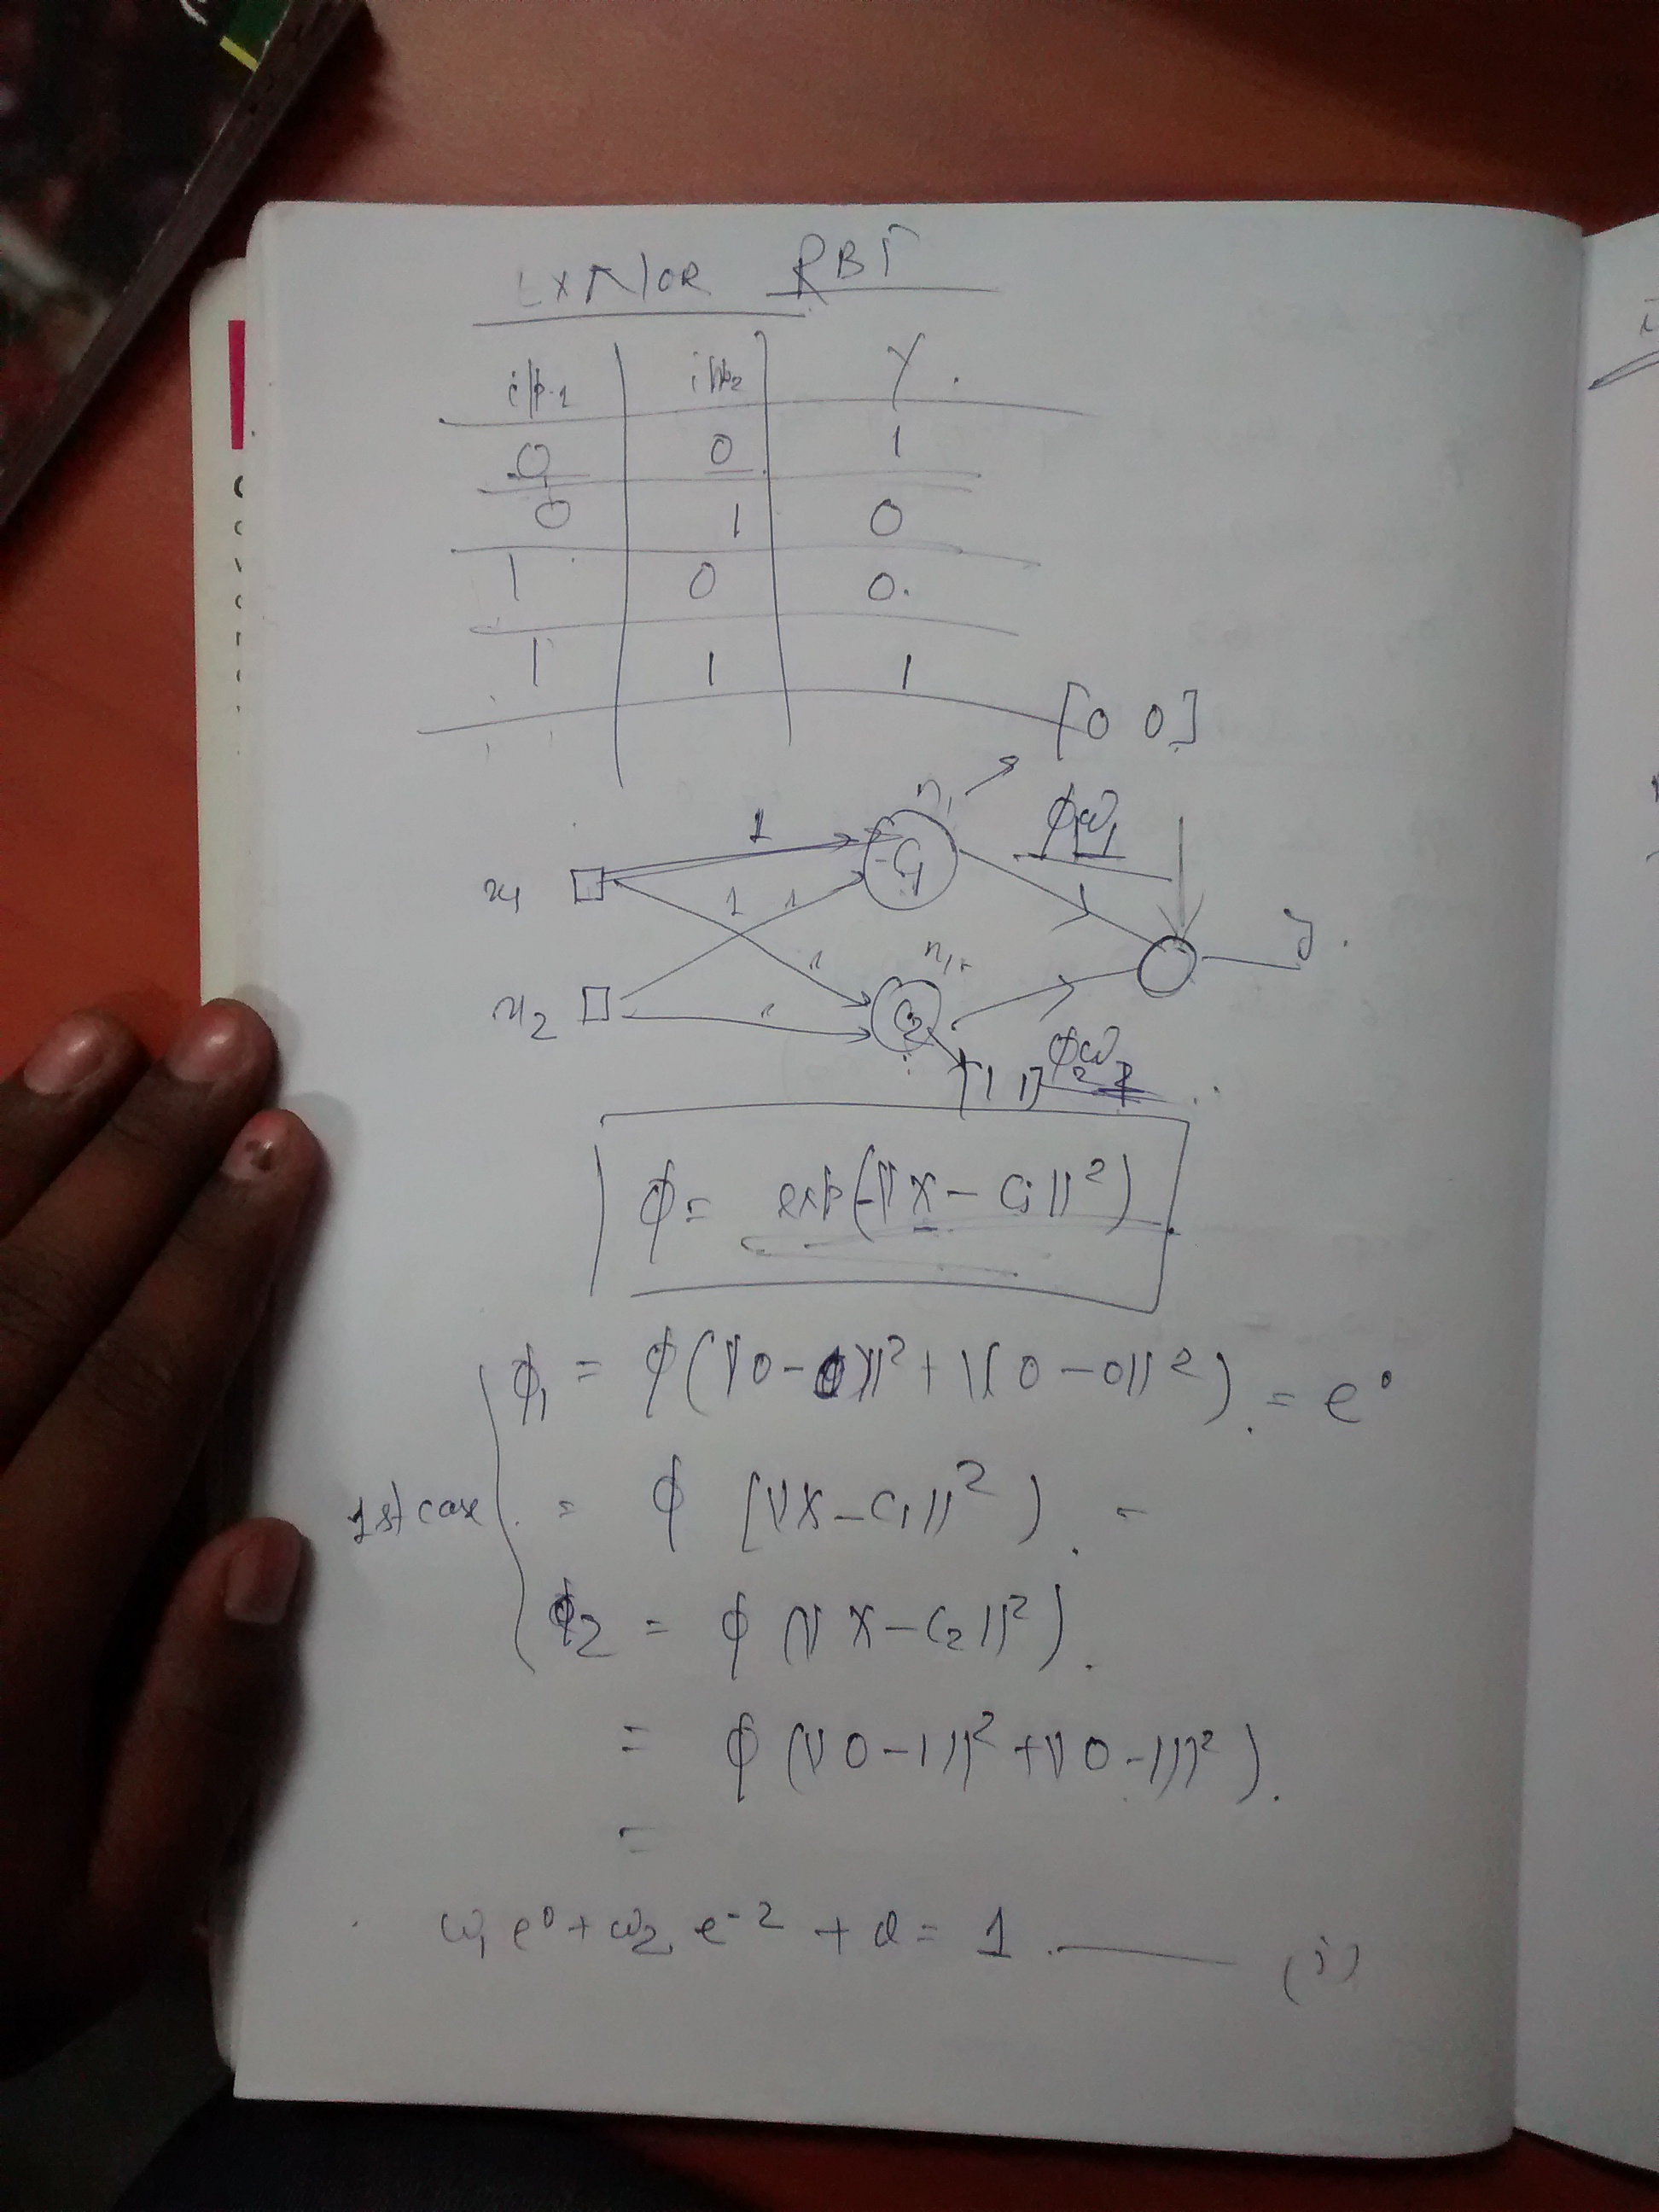 EXNOR RBF
i/p1 i/p2 Y
0 0 1
0 1 0
1 0 0
1 1 1
[0 0]
n1
1
φ1ω1
x1
C1
1 1
y
1
x2
1
C2
[1 1]
φ2ω2
φ = exp(-||x - Ci||²)
φ1 = φ(||0-0||² + ||0-0||²) = e⁰
1st case = φ [||X-C1||²) =
φ2 = φ (||X-C2||²)
= φ (||0-1||² + ||0-1||²)
=
ω1 e⁰ + ω2 e⁻² + = 1 (i)